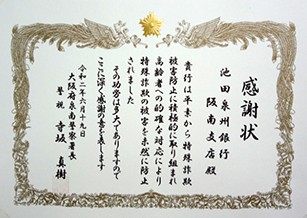 感謝状
池田泉州銀行
阪南支店殿
貴行は平素から特殊詐欺
被害防止に積極的に取り組まれ
高齢者への的確な対応により
特殊詐欺の被害を未然に防止
されました
その功労は多大でありますので
ここに深く感謝の意を表します
令和二年六月十九日
大阪府泉南警察署長
警視 寺坂真樹